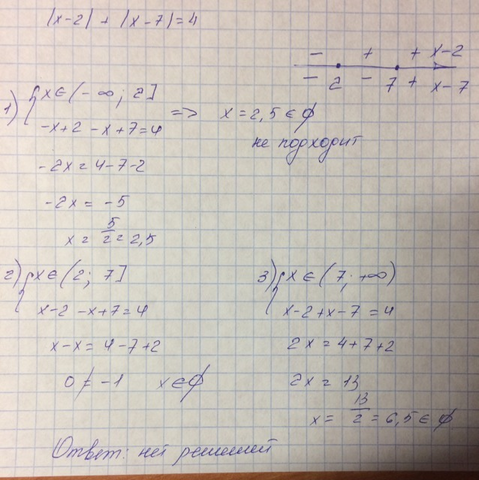 |x-2| + |x-7| = 4
- + + x-2
- 2 - 7 + x-7
1) { x∈(-∞; 2]
-x+2 -x+7=4 => x = 2,5 ∈ ϕ
не подходит
-2x=4-7-2
-2x = -5
x = 5/2 = 2,5
2) { x∈(2; 7]
x-2 -x+7=4
x-x= 4-7+2
0 ≠ -1 x∈ϕ
3) { x∈(7; +∞)
x-2+x-7=4
2x=4+7+2
2x = 13
x = 13/2 = 6,5 ∈ ϕ
Ответ: нет решений